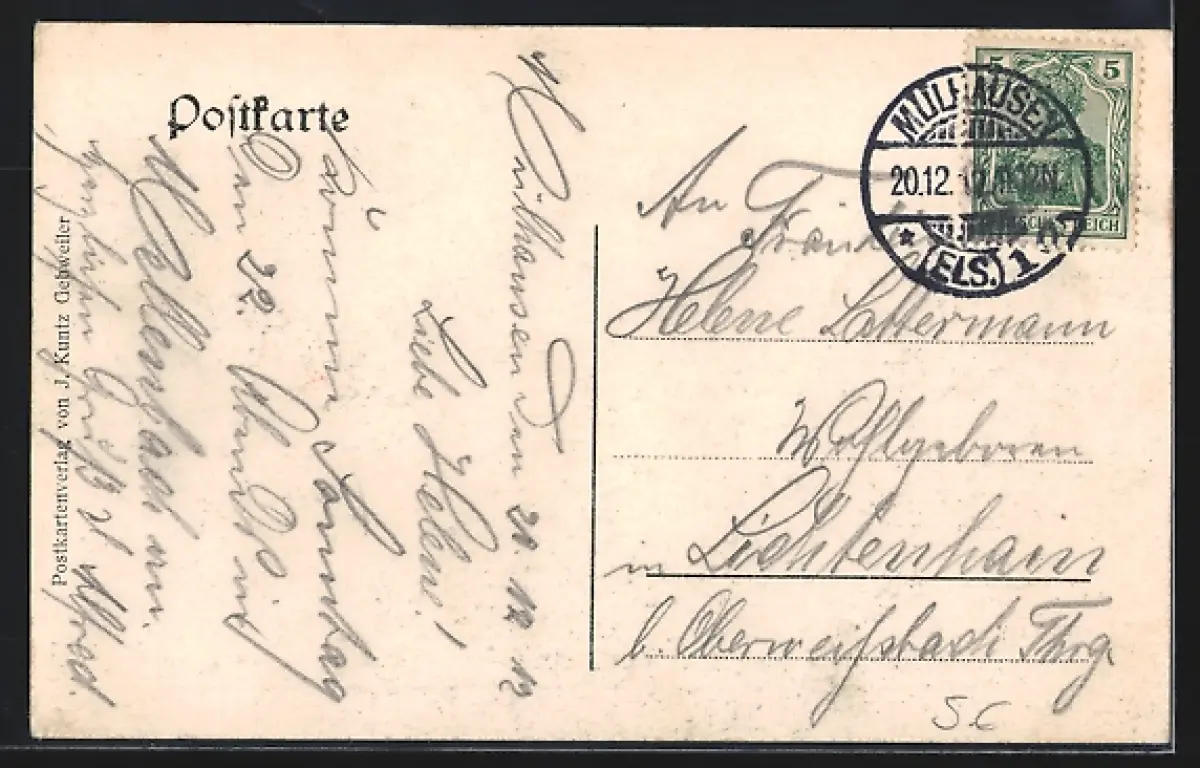 Postkarte
Mülhausen den 20. 12. 12
Liebe Helene!
Komme Samstag
den 22. Abends in
Mellenbach an.
Herzlichen Gruß Alfred.
Postkartenverlag von J. Kuntz Gebweiler
An Fräulein
Helene Lattermann
Wohlgeboren
in Lichtenhain
b. Oberweißbach Thrg.
5
5
MÜLHAUSEN
20.12.
(ELS.) 1
REICH